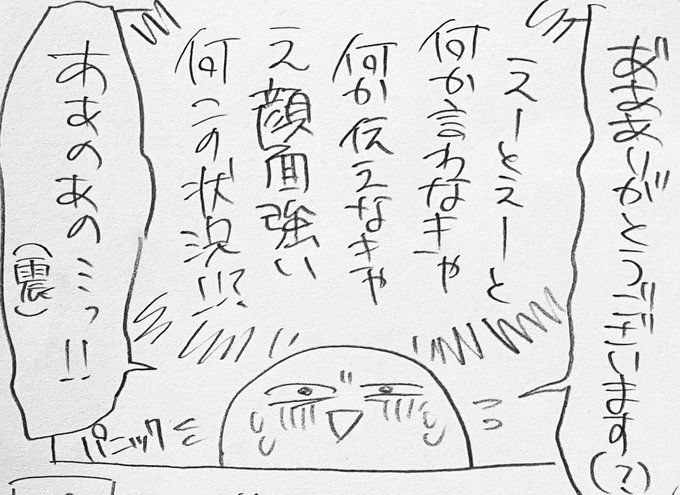 あ゛ああありがと ございます(?)
えーとえーと
何か言わなきゃ
何か伝えなきゃ
え顔面強い
何この状況!!?
ああのあのミっ!!
(震)
パニック